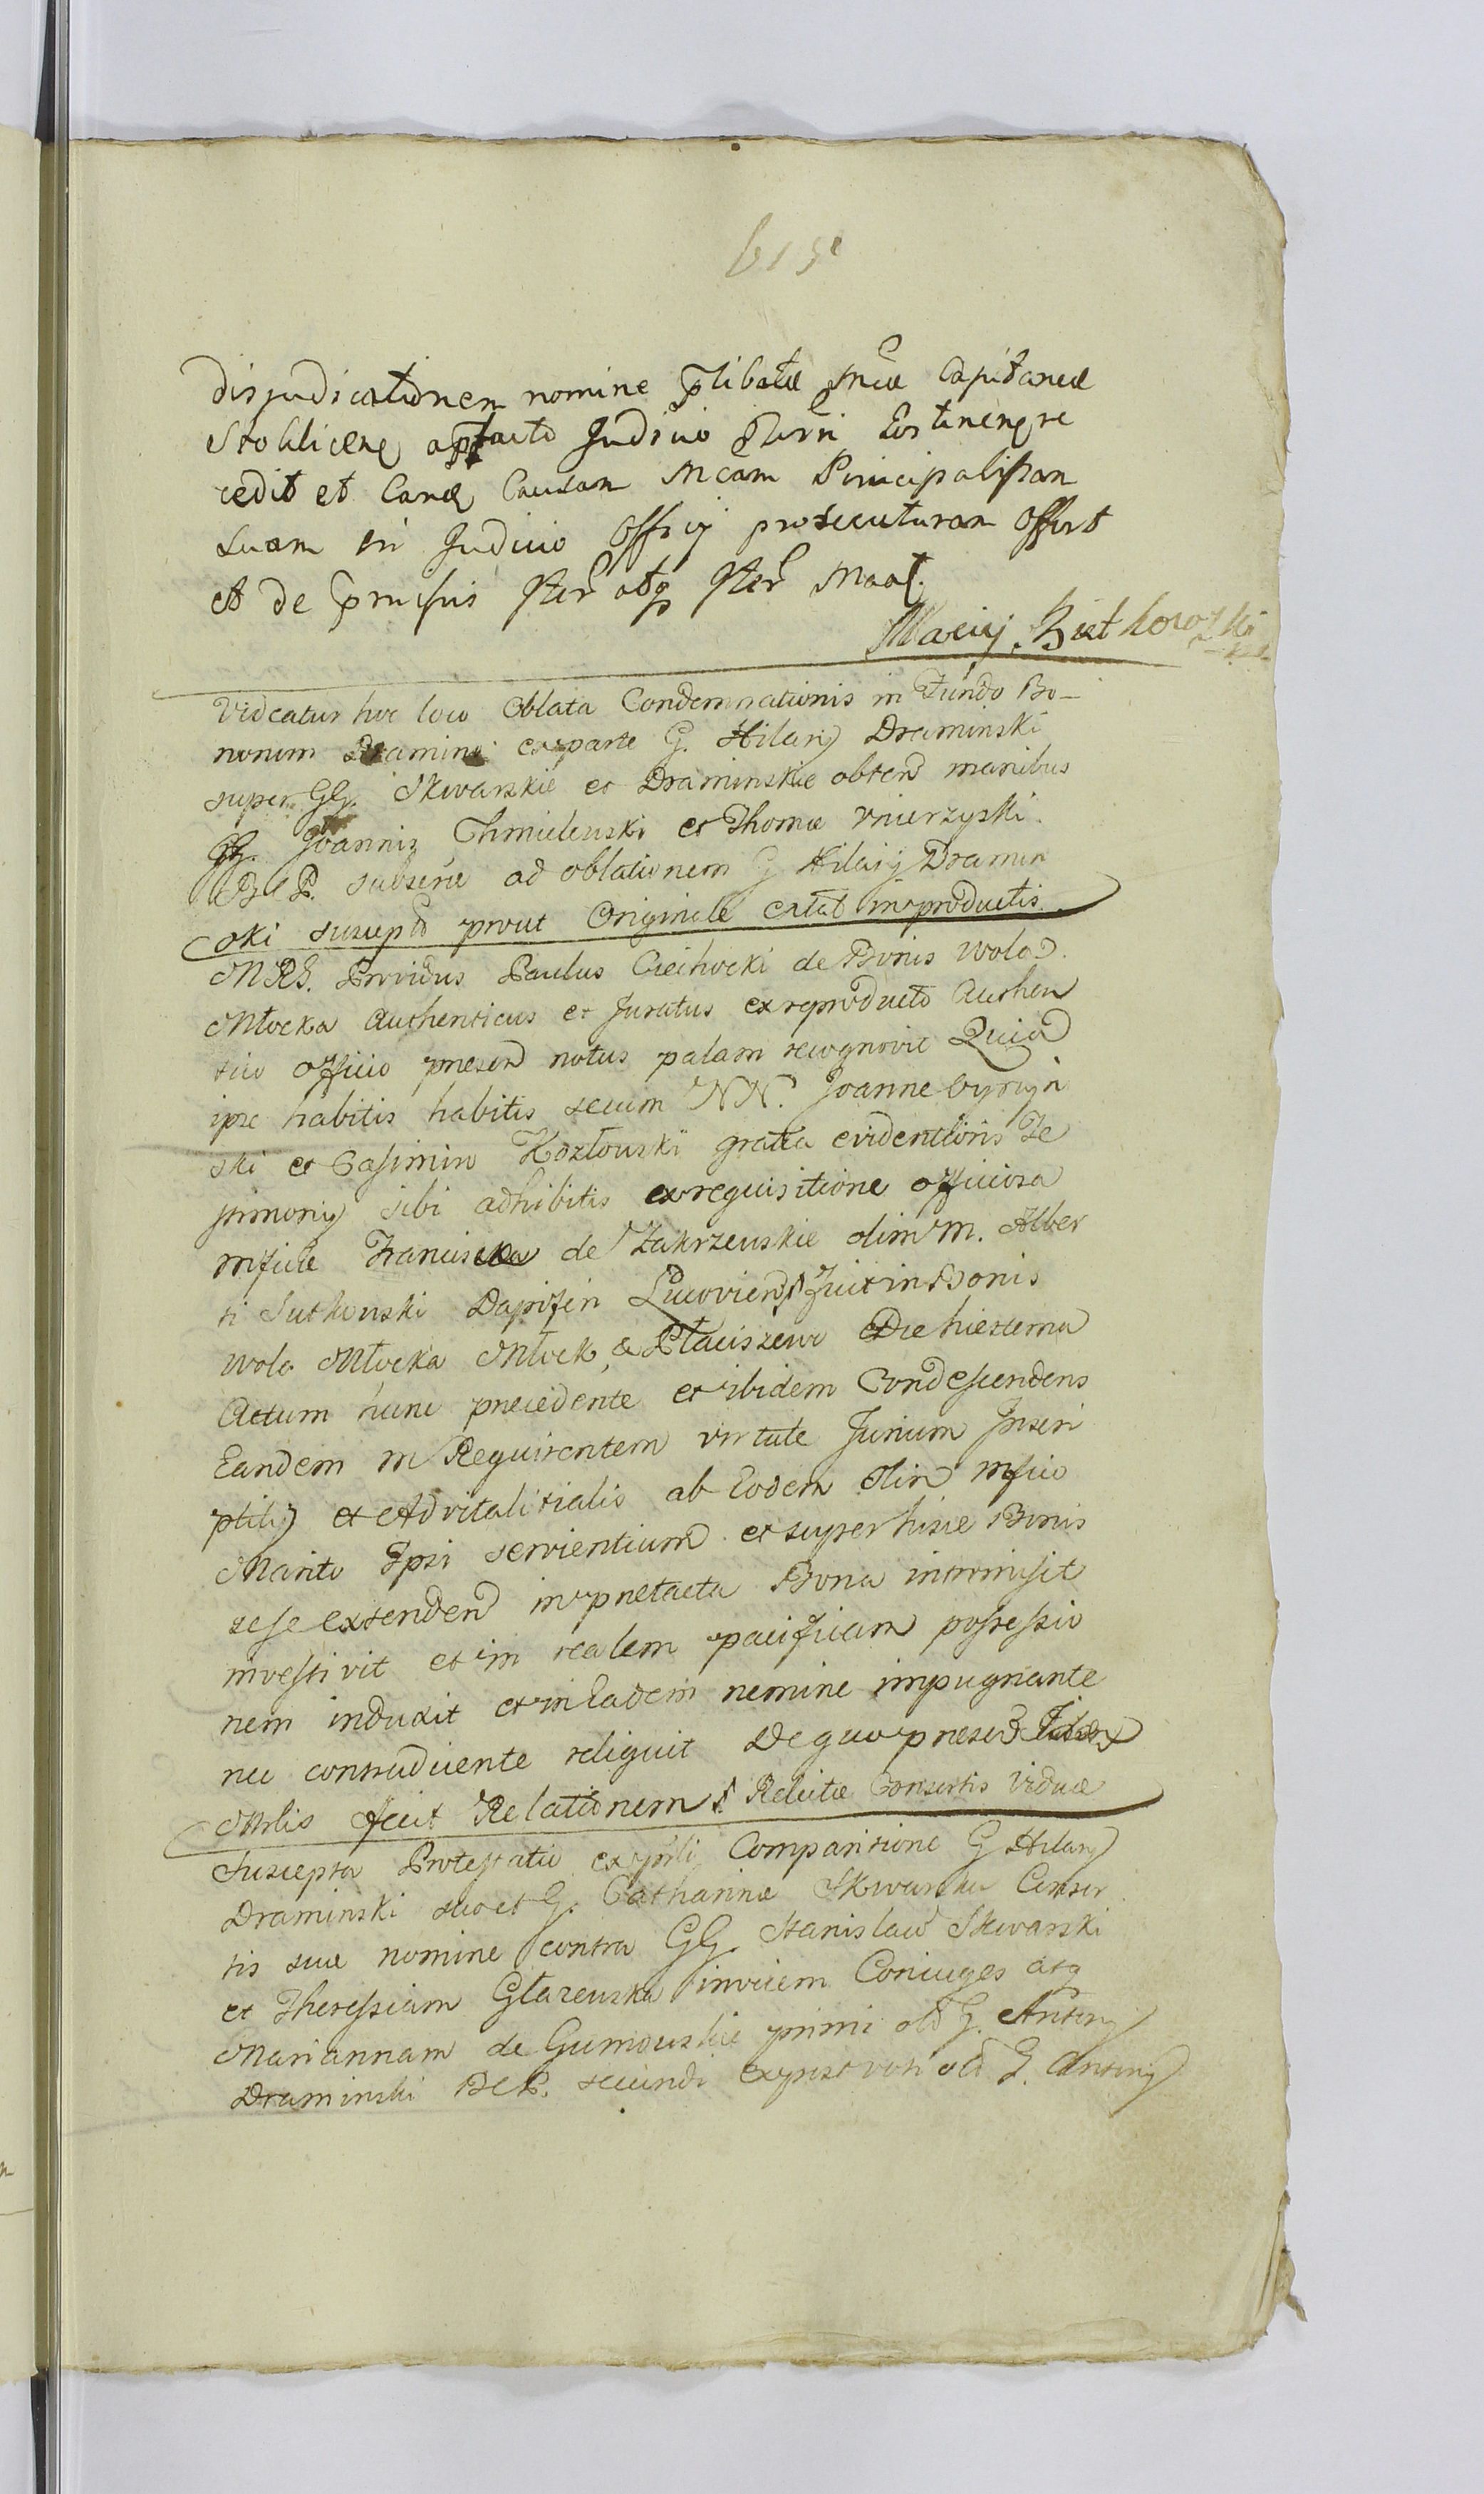 disjudicationem nomine p̄libatæ Mcæ Capitaneæ
Judicio
cedit et Causam Mcam
Suam in Judicio Offcij prosecuturam Offert
et de p̄missis Iter̄ atq Iter̄ Maāt.
Maciej
Videatur hoc loco Oblata Condemnationis in Fundo Bo-
norum Dramino ex parte G. Hilarij Draminski
super GG. Skwarskie et Draminskie obtenð manibus
GG. Joannis Chmielewski et Thomæ Unierzyski
B et P. ad oblationem G Hilarij Dramin
ski susceptð prout Originale extat in productis
MRS. Providus Paulus Ciechocki de Bonis Wola
Młocka Authenticus et Juratus ex reproducto Authen
tico officio presenð notus palam recognovit Quia
ipse habitis habitis secum NN. Joanne
ski et Casimiro Kozłowski gratia evidentioris Te
stimonij sibi adhibitis ex requisitione officiosa
Mficæ Franciscæ de Zakrzewskie olim M. Alber
ti Sutkowski Dapiferi fuit in Bonis
Wola Młocka Młock & Płaciszewo Die hiesterna
Actum hunc precedente et ibidem Condescendens
Eandem M Requirentem virtute Jurium Inscri
ptitij et Advitalitialis ab Eodem Olim Mfico
Marito Ipsi servientium et super hisce Bonis
sese extendenð in pretacta Bona intromisit
investivit et in realem pacificam possessio
nem induxit et in Eadem nemine impugnante
nec contradicente reliquit De quo presenð
fecit Relationem Relictæ Consortis Viduæ
Suscepta Protestatio ex Comparitione G Hilarij
Draminski suo et G. Catharinæ Skwarska Consor
tis suæ nomine contra GG. Stanislaū Skwarski
et Theressiam Głazewska invicem Coniuges atq
Mariannam de Gumowskie primi olð G. Antonij
Draminski BCP. secundi voti olð G. Antonij